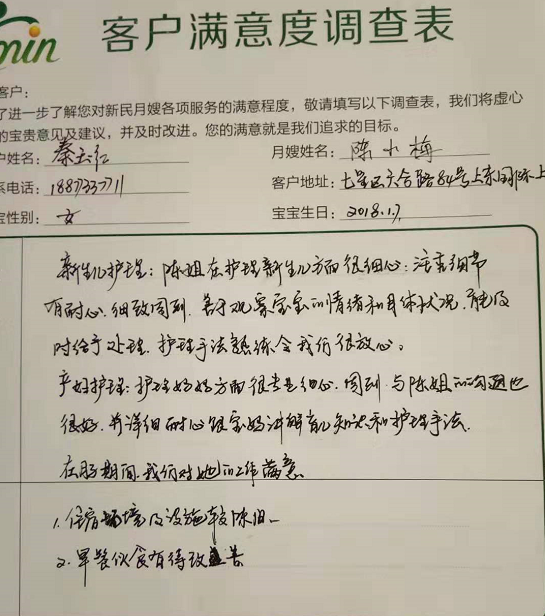 min
客户满意度调查表
客户：
了进一步了解您对新民月嫂各项服务的满意程度，敬请填写以下调查表，我们将虚心
的宝贵意见及建议，并及时改进。您的满意就是我们追求的目标。
户姓名：秦云仁 月嫂姓名：陈小梅
系电话：18877337711 客户地址：七星区六合路84号上东国际上
宝性别：女 宝宝生日：2018.1.7
新生儿护理：陈姐在护理新生儿方面很细心；注意细节
有耐心，细致周到，善于观察宝宝的情绪和身体状况，能及
时给予处理，护理手法熟练令我们很放心。
产妇护理：护理妈妈方面很专业细心，周到，与陈姐的沟通也
很好，并详细耐心跟宝妈讲解育儿知识和护理手法。
在职期间，我们对她的工作满意
1.住宿环境及设施较陈旧。
2.早餐伙食有待改善